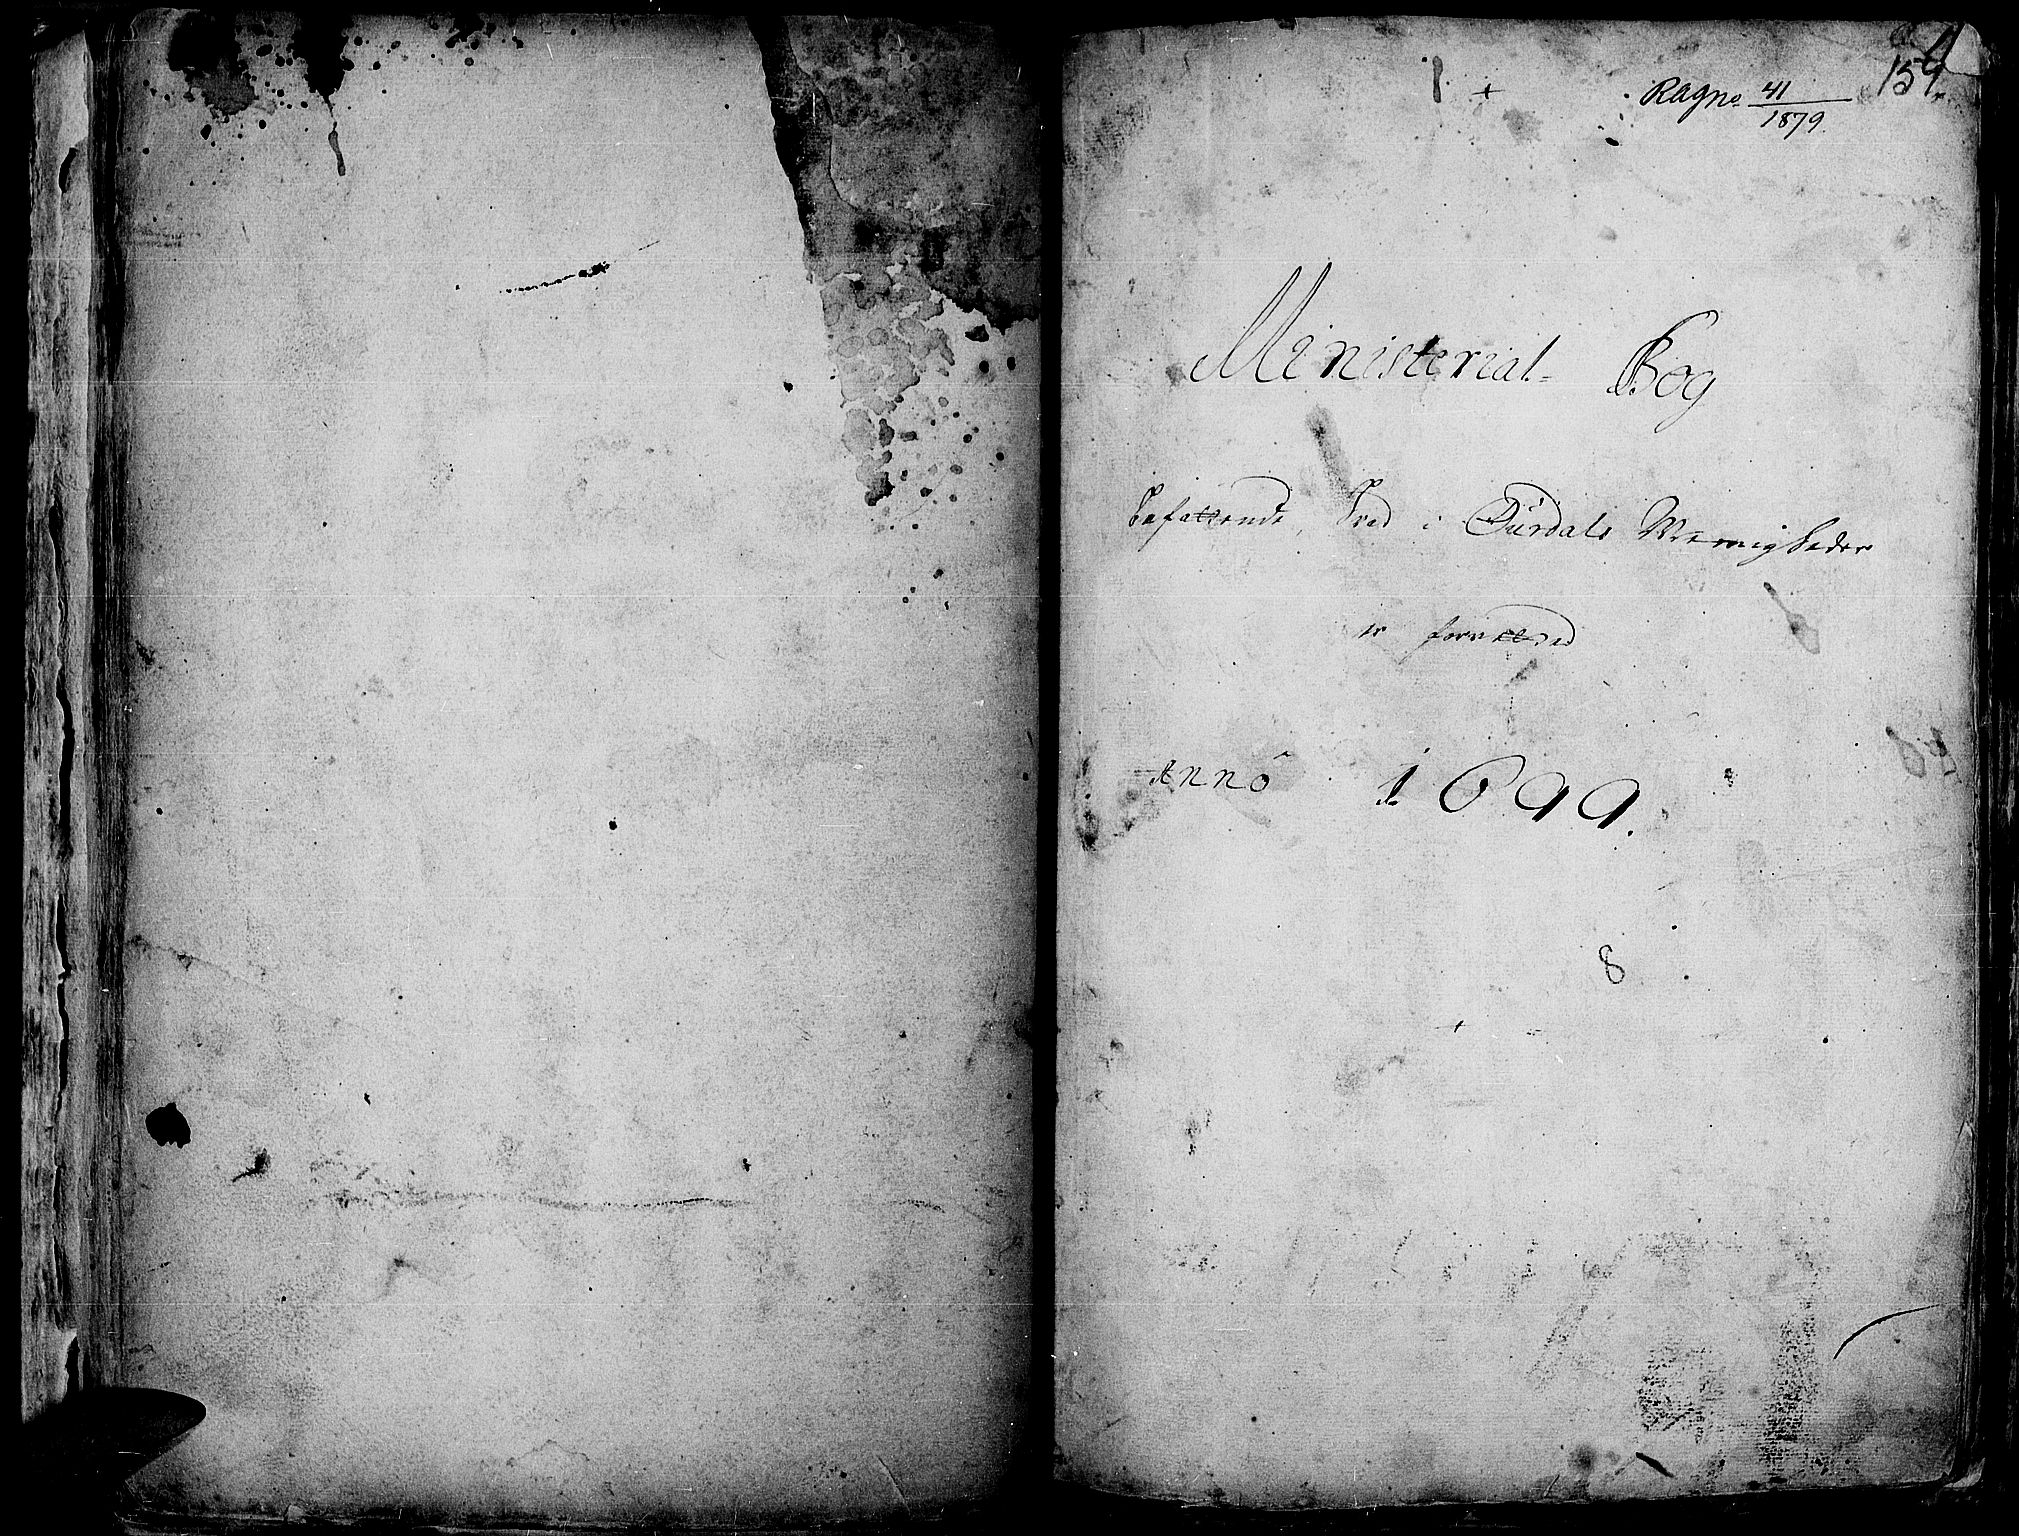 159.
Ragno 41/1879
Ministerial- Bog
Befattende, hvad i Öürdals Menigheder
er forrettед
Anno 1699.
8